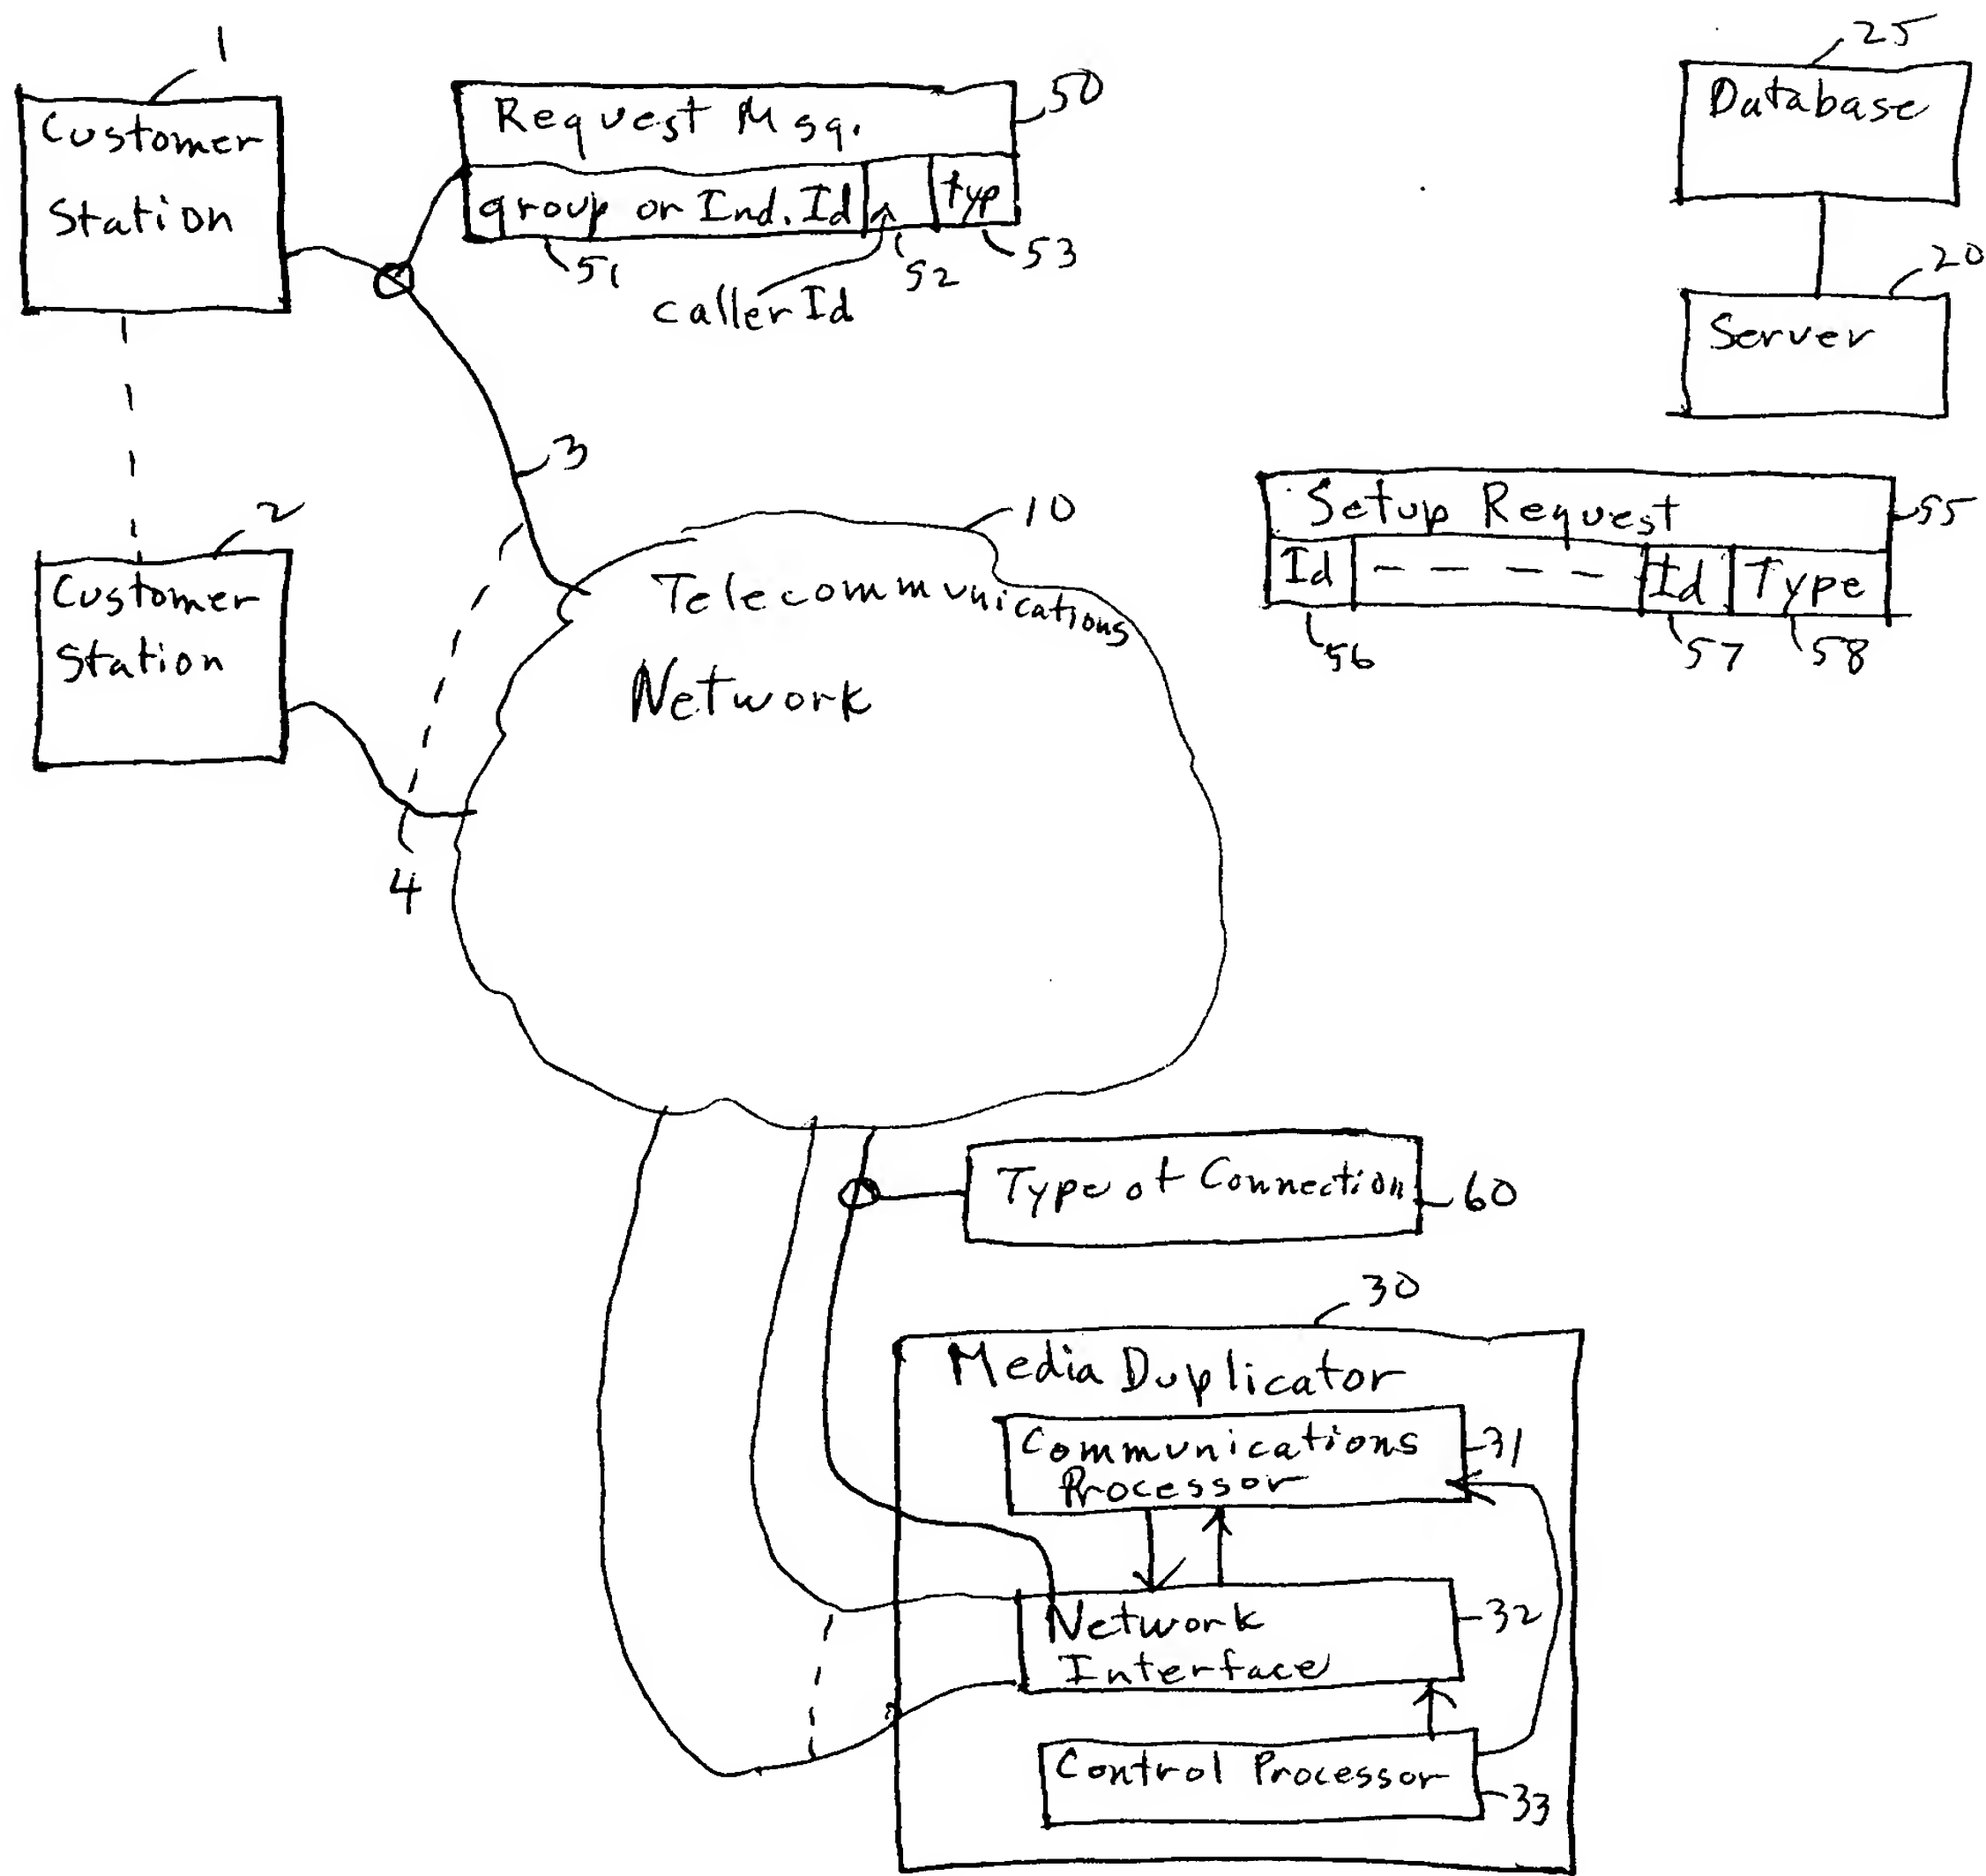 1
Customer
Station
Request Msg.
50
group or Ind. Id
typ
51
52
53
caller Id
25
Database
20
Server
3
2
Customer
Station
4
10
Telecommunications
Network
Setup Request
55
Id
Id
Type
56
57
58
Type of Connection
60
30
Media Duplicator
Communications
Processor
31
Network
Interface
32
Control Processor
33